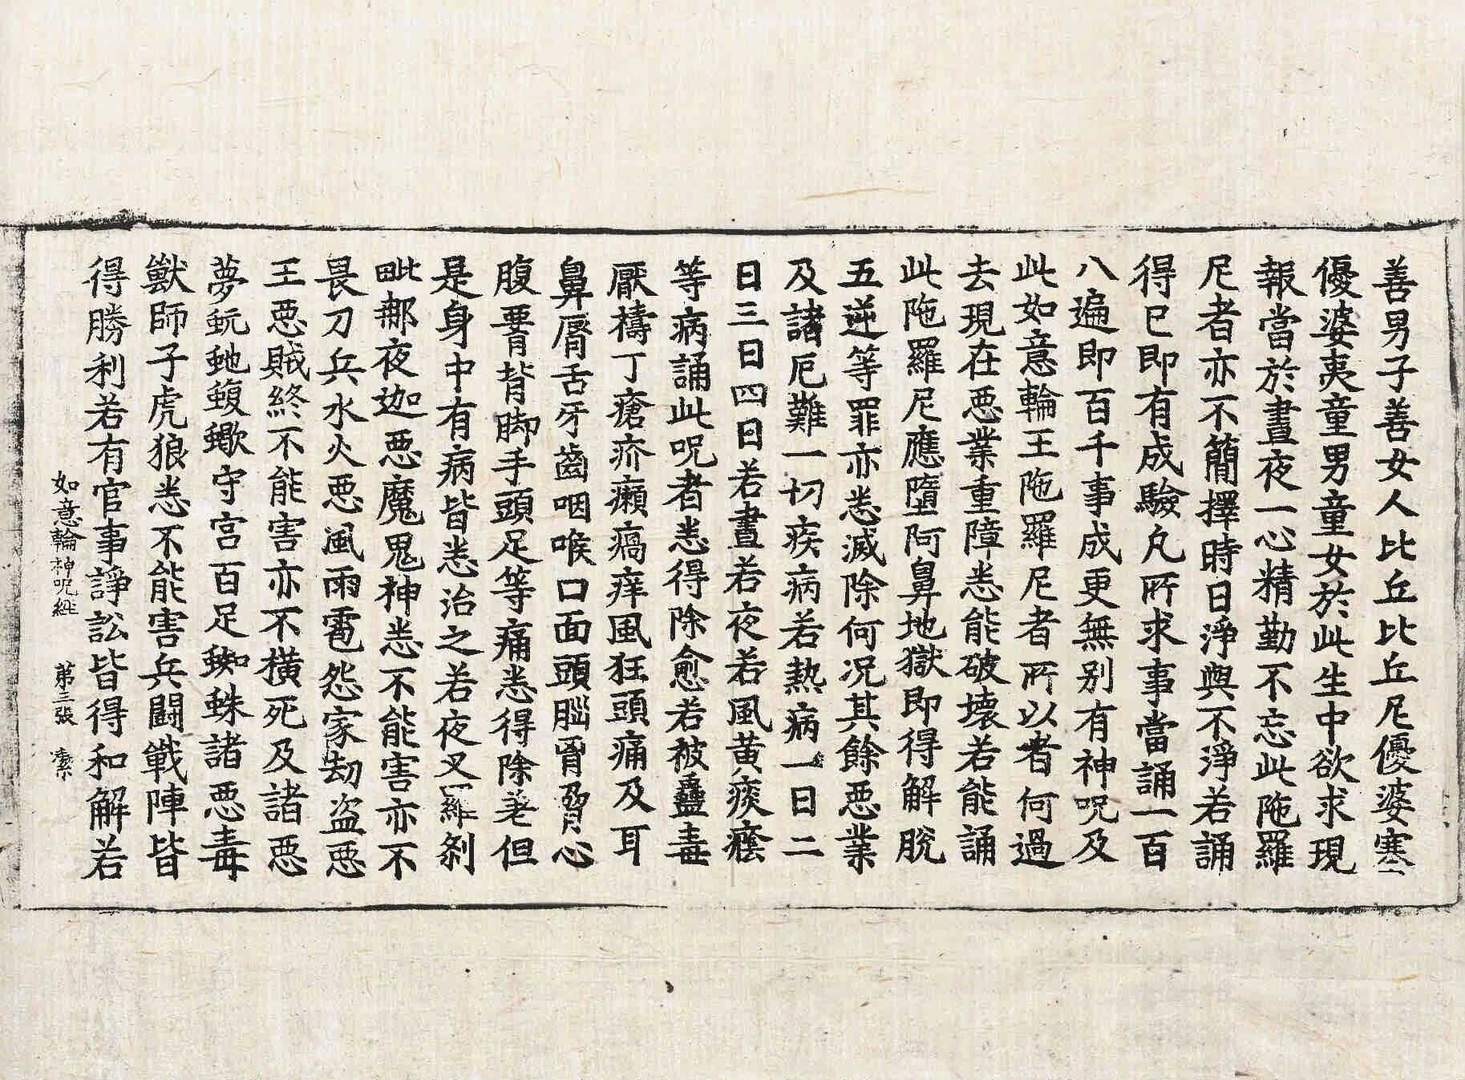 善男子善女人比丘比丘尼優婆塞
優婆夷童男童女於此生中欲求現
報當於晝夜一心精勤不忘此陁羅
尼者亦不簡擇時日淨與不淨若誦
得已即有成驗凡所求事當誦一百
八遍即百千事成更無別有神呪及
此如意輪王陁羅尼者所以者何過
去現在惡業重障悉能破壞若能誦
此陁羅尼應墮阿鼻地獄即得解脫
五逆等罪亦悉滅除何況其餘惡業
及諸厄難一切疾病若熱病一日二
日三日四日若晝若夜若風黃痰癊
等病誦此呪者悉得除愈若被蠱毒
厭檮丁瘡疥癩癘痒風狂頭痛及耳
鼻脣舌牙齒咽喉口面頭腦胷脅心
腹䐴背脚手頭足等痛悉得除差但
是身中有病皆悉治之若夜叉羅剎
毗那夜迦惡魔鬼神悉不能害亦不
畏刀兵水火惡風雨雹怨家劫盜惡
王惡賊終不能害亦不橫死及諸惡
夢蚖虵蝮蠍守宮百足蜘蛛諸惡毒
獸師子虎狼悉不能害兵鬪戰陣皆
得勝利若有官事諍訟皆得和解若
如意輪神呪經 第三張 㯱